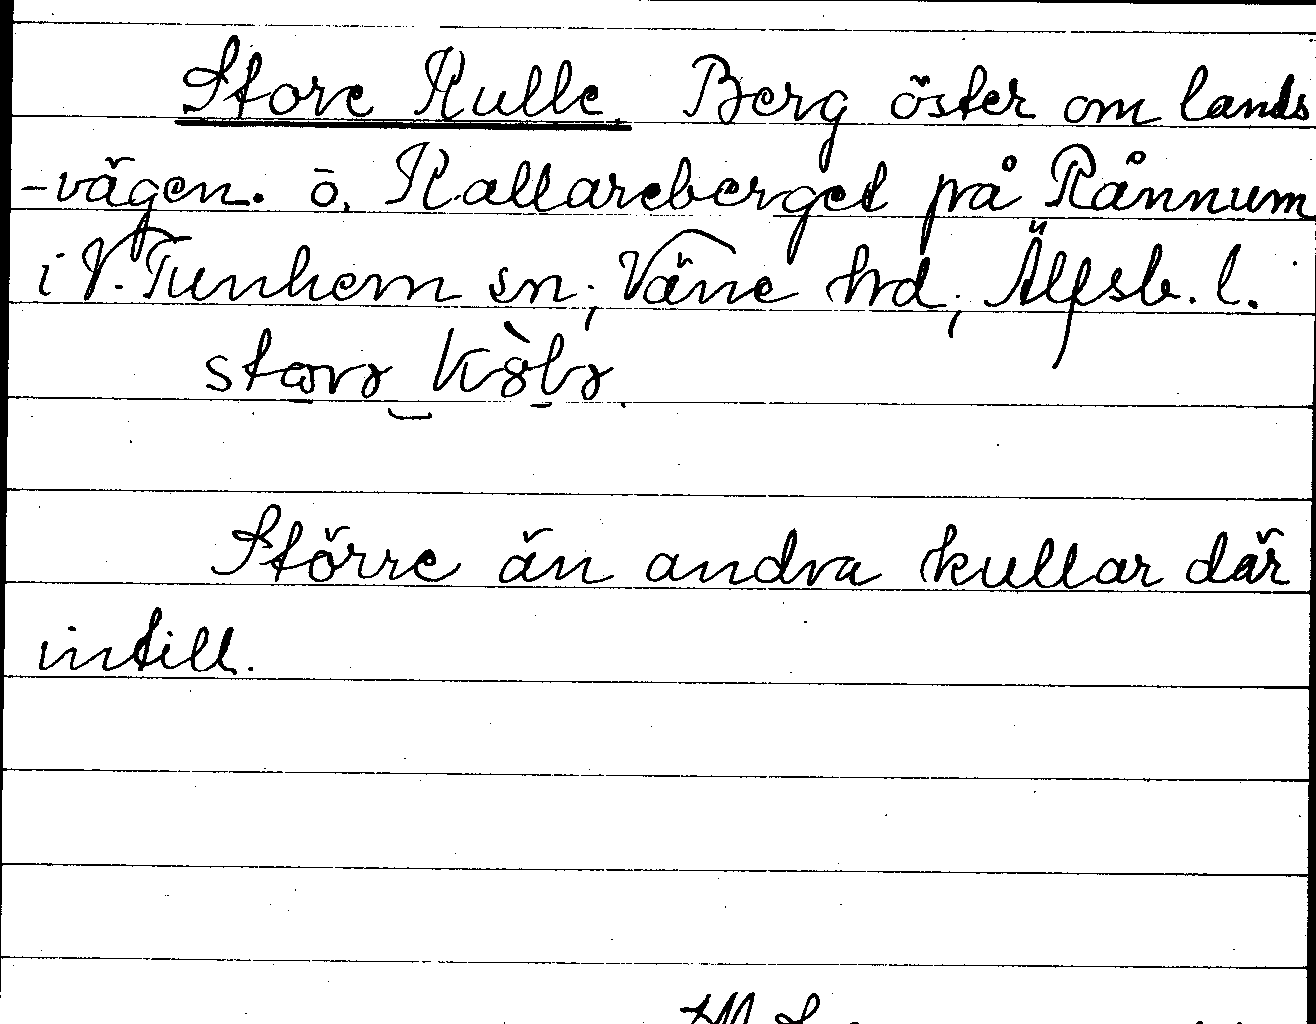 Store Kulle. Berg öster om lands
-vägen. ö. Kallareberget på Rånnum
i V. Tunhem sn; Väne hd, Älfsb. l.
Större än andra kullar där
intill.